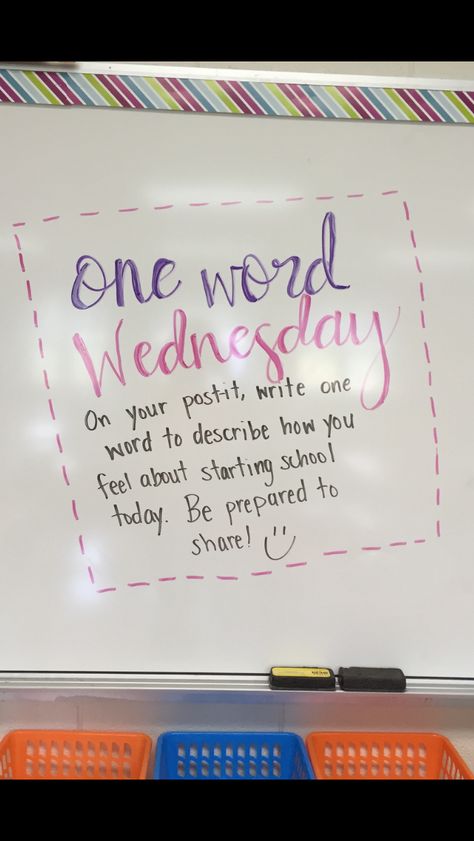 one word
Wednesday
On your post-it, write one
word to describe how you
feel about starting school
today. Be prepared to
share!